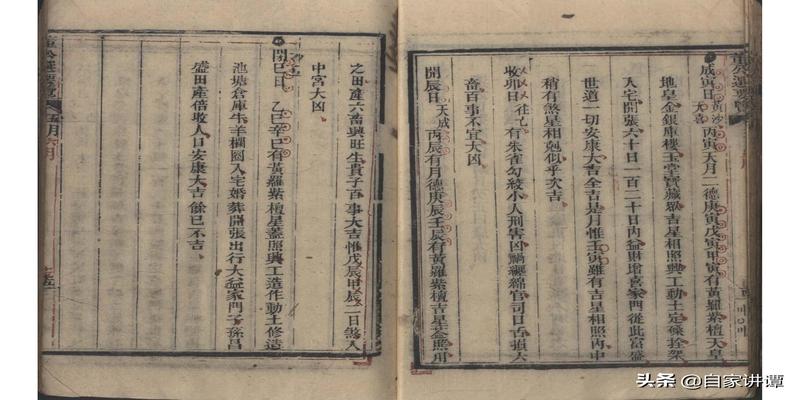 成寅日黃沙天喜丙寅天月二德庚寅戊寅甲寅有黃羅紫檀天皇
地皇金銀庫樓玉堂寶藏眾吉星相照興工動土定磉拴架
入宅開張六十日一百二十日內益財增喜家門從此富盛
世道一切安康大吉全吉是月惟壬寅雖有吉星相照內中
稍有煞星相剋似乎次吉
收卯日往亡有朱雀勾絞小人刑害凶禍纏綿官司口舌損六
畜百事不宜大凶
開辰日天成丙辰有月德庚辰壬辰有黃羅紫檀吉星蓋照用
之田產六畜興旺生貴子百事大吉惟戊辰甲辰二日煞入
中宮大凶
閉巳日乙巳辛巳有黃羅紫檀星蓋照興工造作動土修造
池塘倉庫牛羊欄圈入宅婚葬開張出行大益家門子孫昌
盛田產倍收人口安康大吉餘巳不吉
五月六月
头条 @自家讲谭